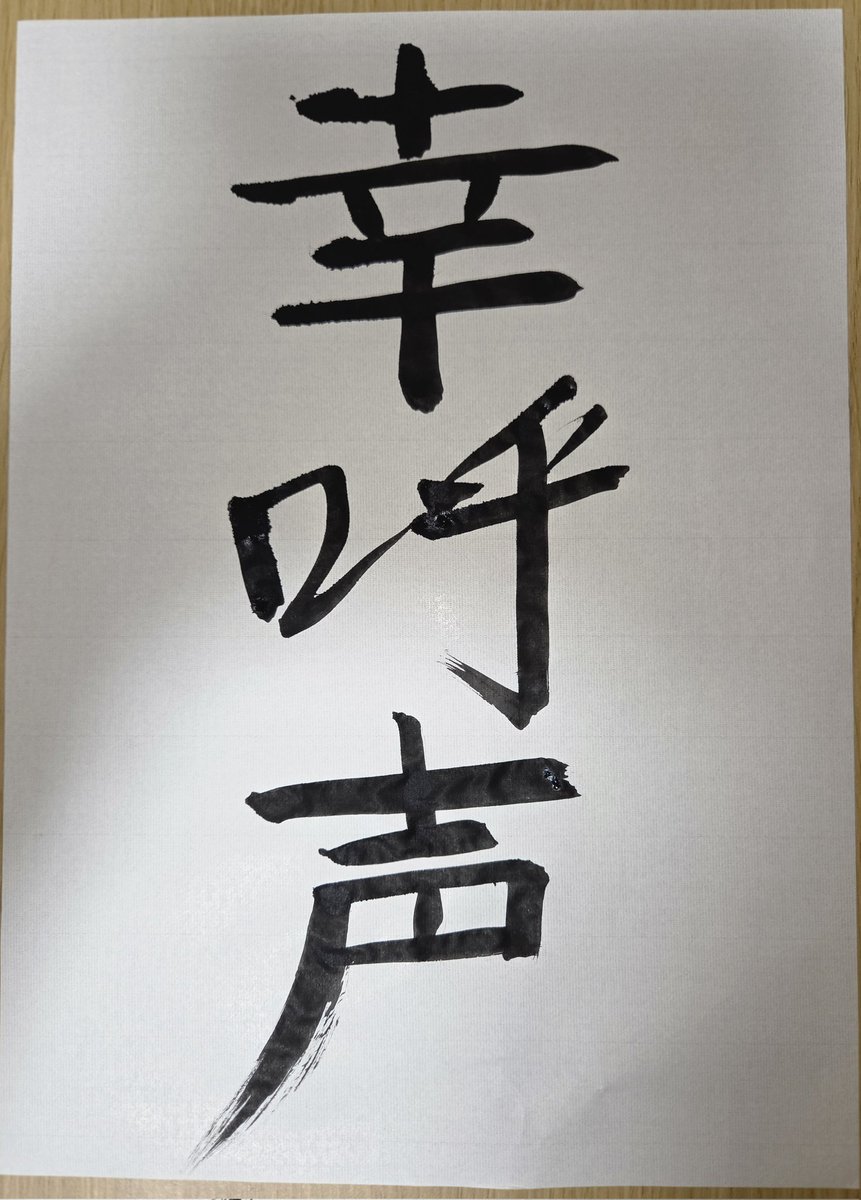 幸呼声